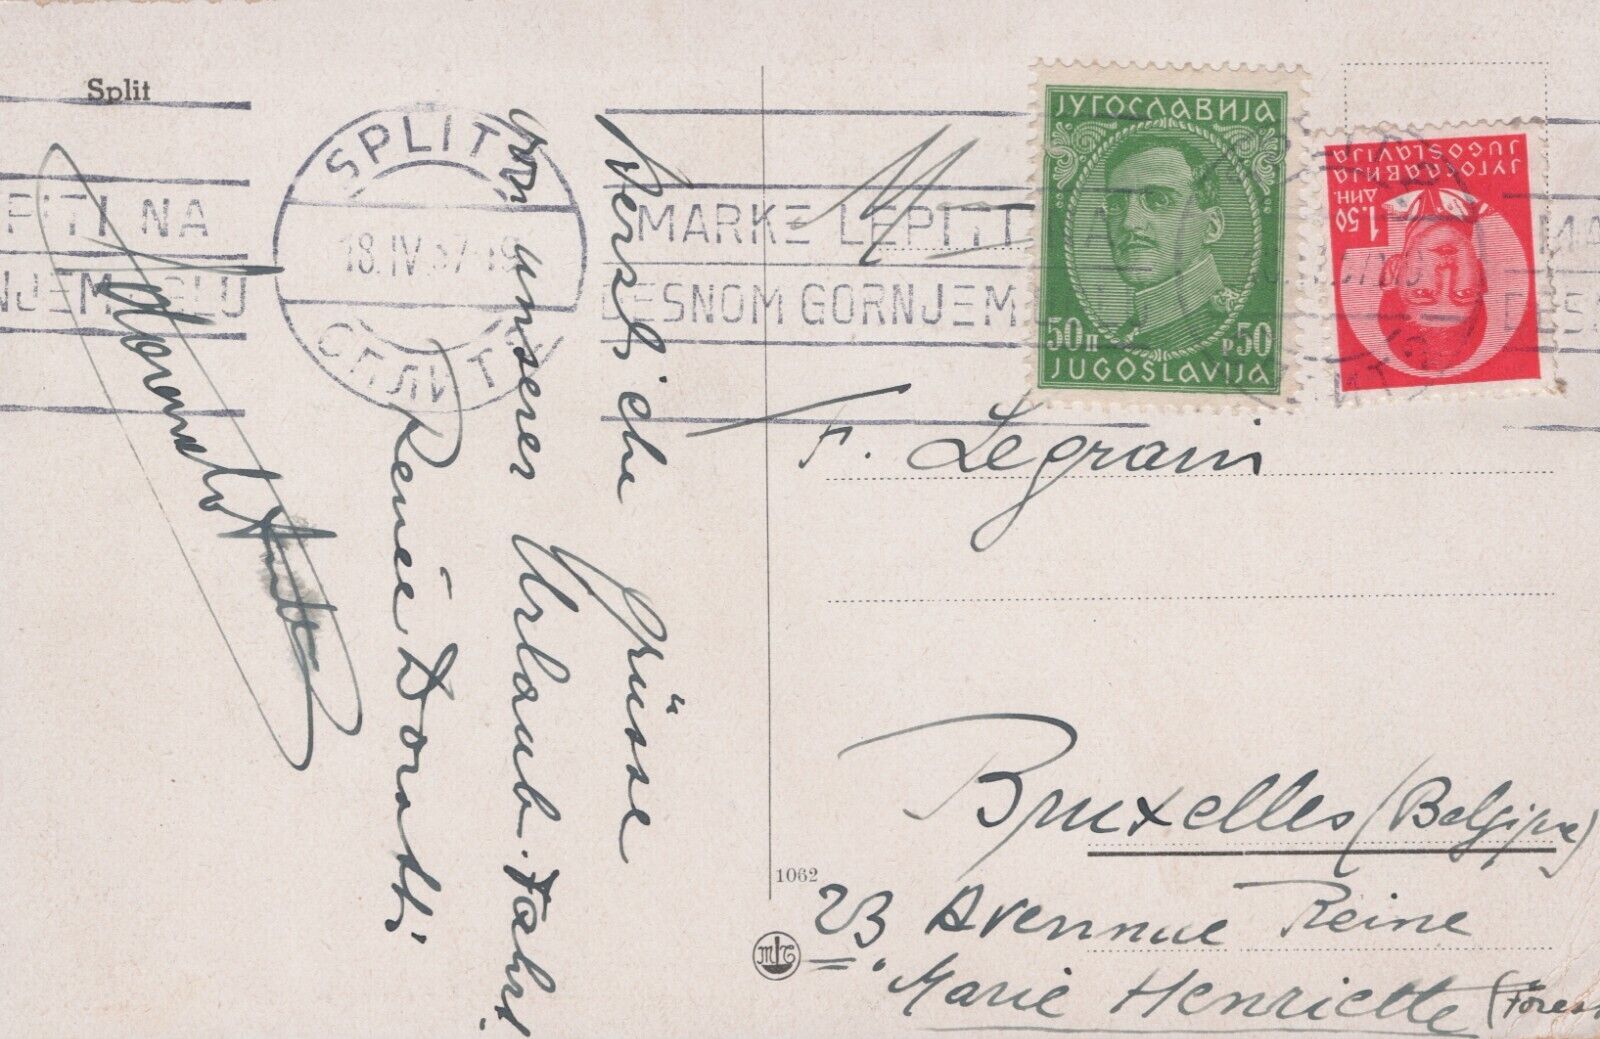 Split
SPLIT
18.IV.37-19
СПЛИТ
PITI NA
NJEM UGLU
MARKE LEPITI
DESNOM GORNJEM
ЈУГОСЛАВИЈА
50п р50
JUGOSLAVIJA
ЈУГОСЛАВИЈА
JUGOSLAVIJA
1.50 ДИН.
Herzliche Grüsse
von unserer Urlaub-Fahrt
Renée Doratti
M
F. Legrain
Bruxelles (Belgique)
23 Avennue Reine
Marie Henriette (Forest
1062